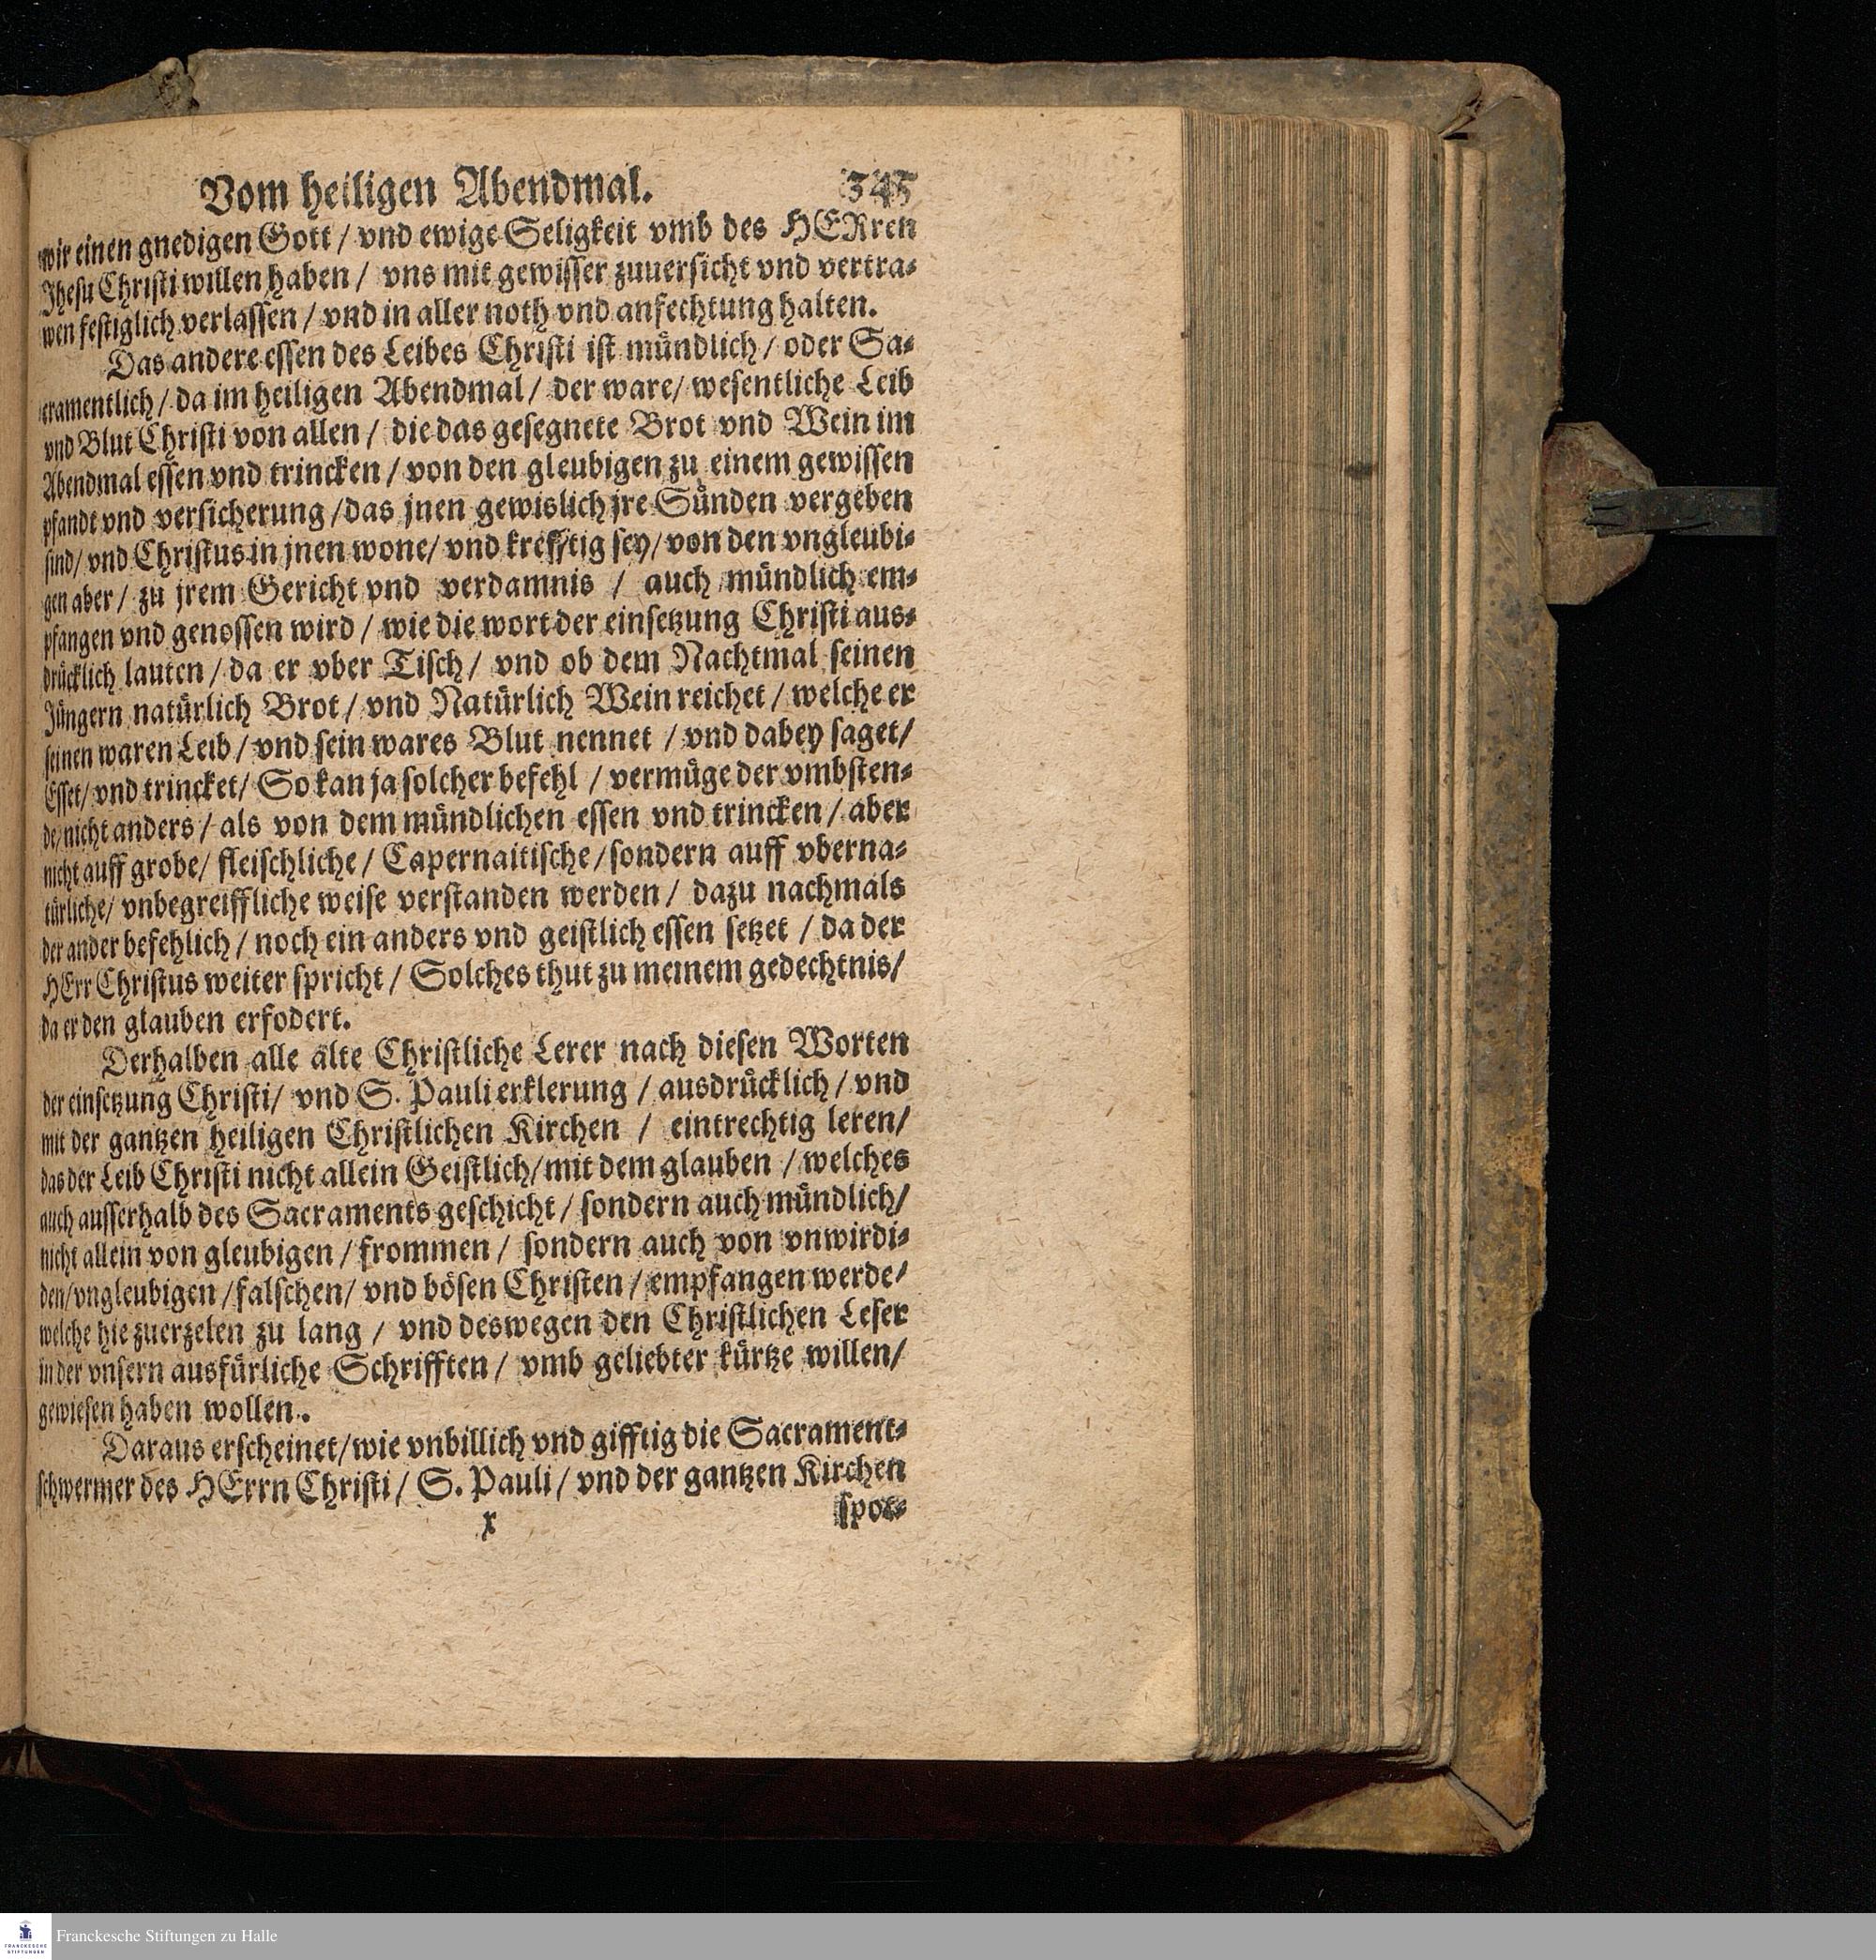 Vom heiligen Abendmal. 345
wir einen gnedigen Gott / vnd ewige Seligkeit vmb des HERren
Jhesu Christi willen haben / vns mit gewisser zuuersicht vnd vertra⸗
wen festiglich verlassen / vnd in aller noth vnd anfechtung halten.
Das andere essen des Leibes Christi ist mündlich / oder Sa⸗
cramentlich / da im heiligen Abendmal / der ware / wesentliche Leib
vnd Blut Christi von allen / die das gesegnete Brot vnd Wein im
Abendmal essen vnd trincken / von den gleubigen zu einem gewissen
pfandt vnd versicherung / das jnen gewislich jre Sünden vergeben
sind / vnd Christus in jnen wone / vnd krefftig sey / von den vngleubi⸗
gen aber / zu jrem Gericht vnd verdamnis / auch mündlich em⸗
pfangen vnd genossen wird / wie die wort der einsetzung Christi aus⸗
drücklich lauten / da er vber Tisch / vnd ob dem Nachtmal seinen
Jüngern natürlich Brot / vnd Natürlich Wein reichet / welche er
seinen waren Leib / vnd sein wares Blut nennet / vnd dabey saget /
Esset / vnd trincket / So kan ja solcher befehl / vermüge der vmbsten⸗
de / nicht anders / als von dem mündlichen essen vnd trincken / aber
nicht auff grobe / fleischliche / Capernaitische / sondern auff vberna⸗
türliche / vnbegreiffliche weise verstanden werden / dazu nachmals
der ander befehlich / noch ein anders vnd geistlich essen setzet / da der
HErr Christus weiter spricht / Solches thut zu meinem gedechtnis /
da er den glauben erfodert.
Derhalben alle alte Christliche Lerer nach diesen Worten
der einsetzung Christi / vnd S. Pauli erklerung / ausdrücklich / vnd
mit der gantzen heiligen Christlichen Kirchen / eintrechtig leren /
das der Leib Christi nicht allein Geistlich / mit dem glauben / welches
auch ausserhalb des Sacraments geschicht / sondern auch mündlich /
nicht allein von gleubigen / frommen / sondern auch von vnwirdi⸗
den / vngleubigen / falschen / vnd bösen Christen / empfangen werde /
welche hie zuerzelen zu lang / vnd deswegen den Christlichen Leser
in der vnsern ausfürliche Schrifften / vmb geliebter kürtze willen /
gewiesen haben wollen.
Daraus erscheinet / wie vnbillich vnd gifftig die Sacrament⸗
schwermer des HErrn Christi / S. Pauli / vnd der gantzen Kirchen
x spot⸗
Franckesche Stiftungen zu Halle
FRANCKESCHE
STIFTUNGEN